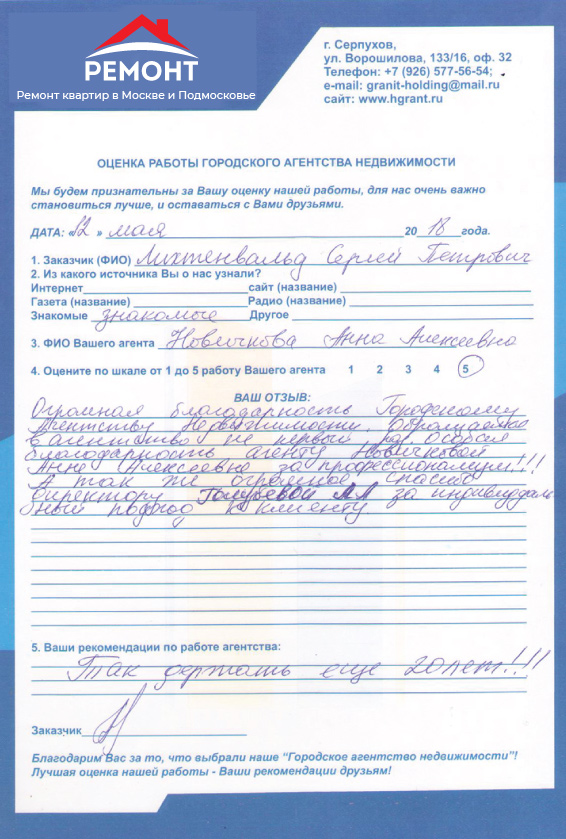 РЕМОНТ
Ремонт квартир в Москве и Подмосковье
г. Серпухов,
ул. Ворошилова, 133/16, оф. 32
Телефон: +7 (926) 577-56-54;
e-mail: granit-holding@mail.ru
сайт: www.hgrant.ru
ОЦЕНКА РАБОТЫ ГОРОДСКОГО АГЕНТСТВА НЕДВИЖИМОСТИ
Мы будем признательны за Вашу оценку нашей работы, для нас очень важно
становиться лучше, и оставаться с Вами друзьями.
ДАТА: «12» мая 2018 года.
1. Заказчик (ФИО) Лихтенвальд Сергей Петрович
2. Из какого источника Вы о нас узнали?
Интернет сайт (название)
Газета (название) Радио (название)
Знакомые знакомые Другое
3. ФИО Вашего агента Новичкова Анна Алексеевна
4. Оцените по шкале от 1 до 5 работу Вашего агента 1 2 3 4 5
ВАШ ОТЗЫВ:
Огромная благодарность Городскому
Агентству Недвижимости. Обращаемся
в агентство не первый раз. Особая
благодарность агенту Новичковой
Анне Алексеевне за профессионализм!!!
А так же огромное спасибо
директору Голубевой за индивидуаль
ный подход к клиенту.
5. Ваши рекомендации по работе агентства:
Так держать еще 20 лет!!!!
Заказчик
Благодарим Вас за то, что выбрали наше “Городское агентство недвижимости”!
Лучшая оценка нашей работы - Ваши рекомендации друзьям!